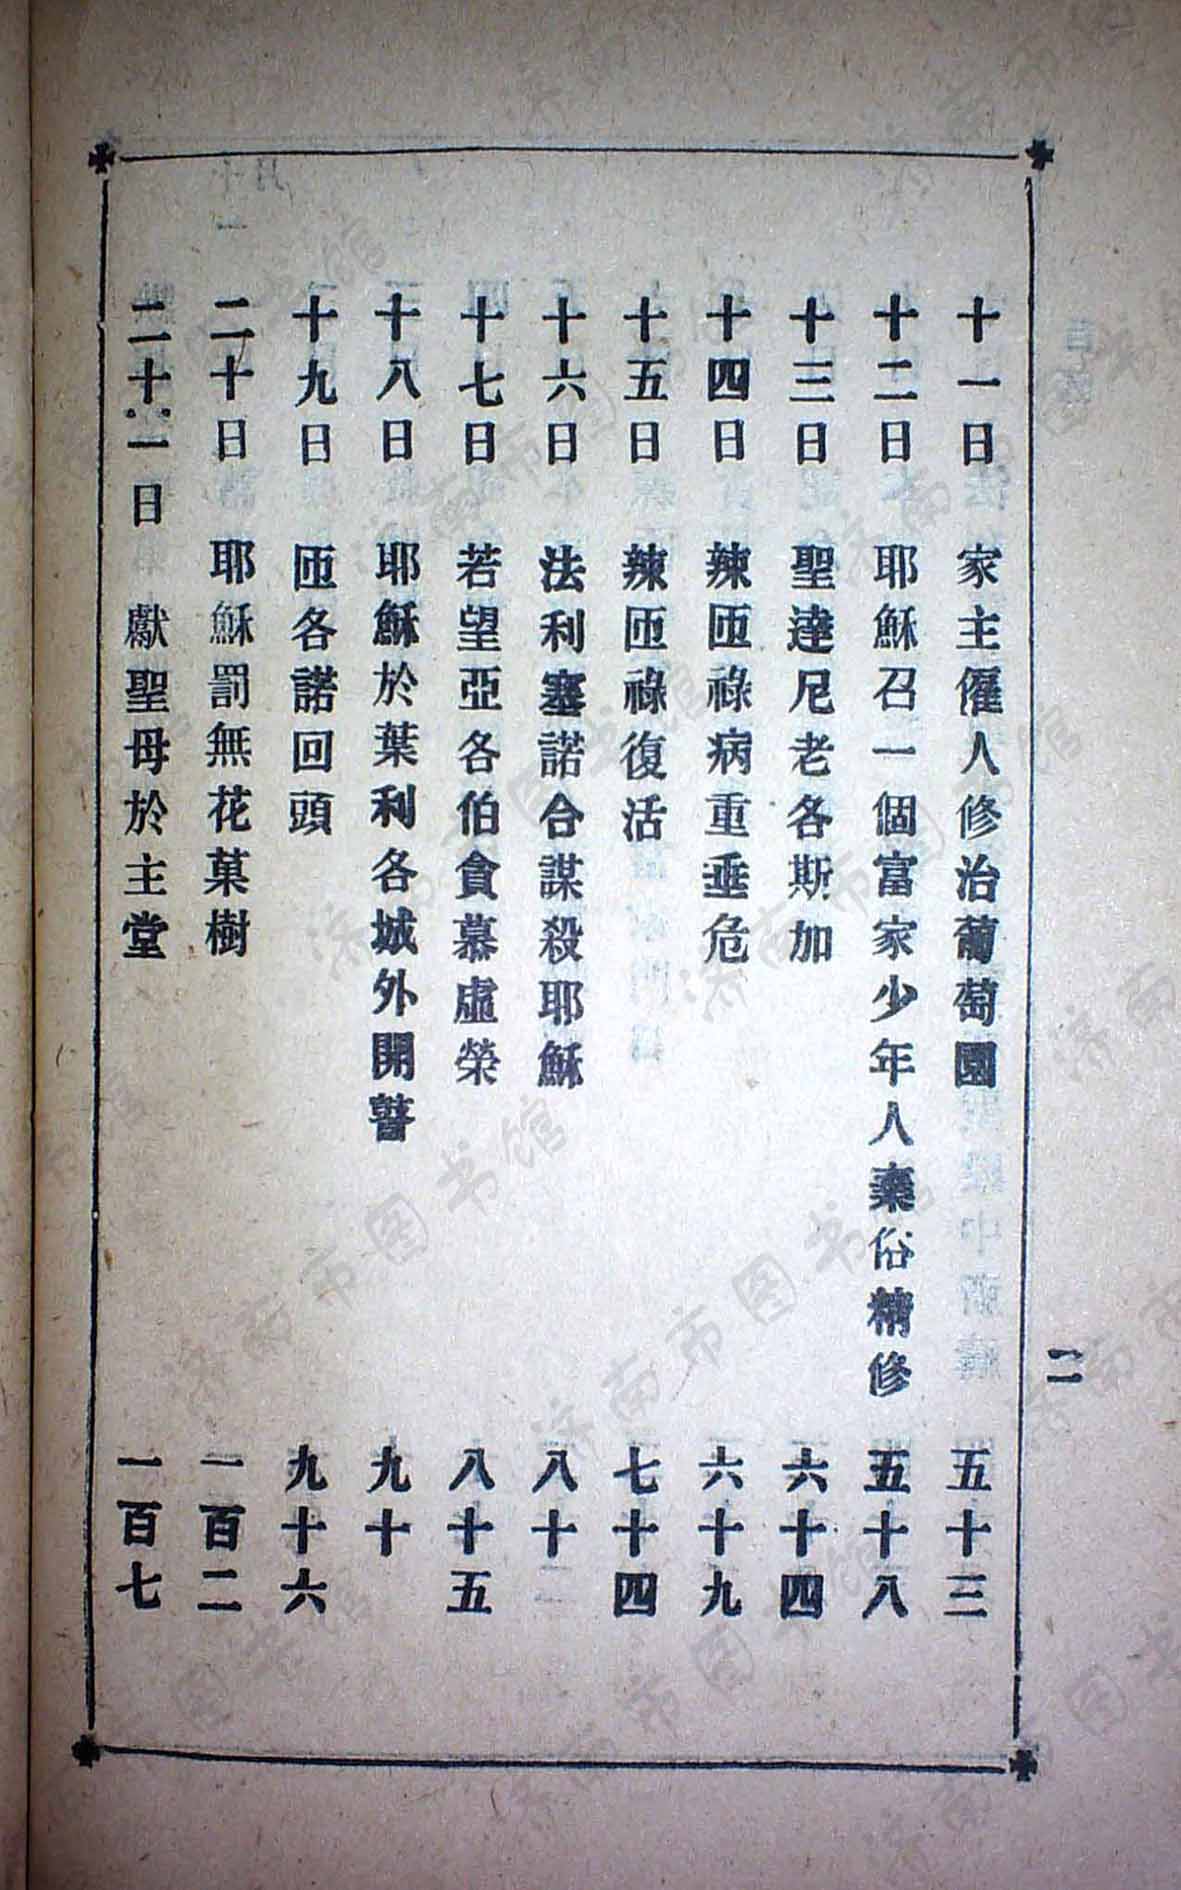 二
十一日 家主僱人修治葡萄園 五十三
十二日 耶穌召一個富家少年人棄俗精修 五十八
十三日 聖達尼老各斯加 六十四
十四日 辣匝祿病重垂危 六十九
十五日 辣匝祿復活 七十四
十六日 法利塞諾合謀殺耶穌 八十
十七日 若望亞各伯貪慕虛榮 八十五
十八日 耶穌於葉利各城外開瞽 九十
十九日 匝各諾回頭 九十六
二十日 耶穌罰無花菓樹 一百二
二十一日 獻聖母於主堂 一百七
济南市图书馆